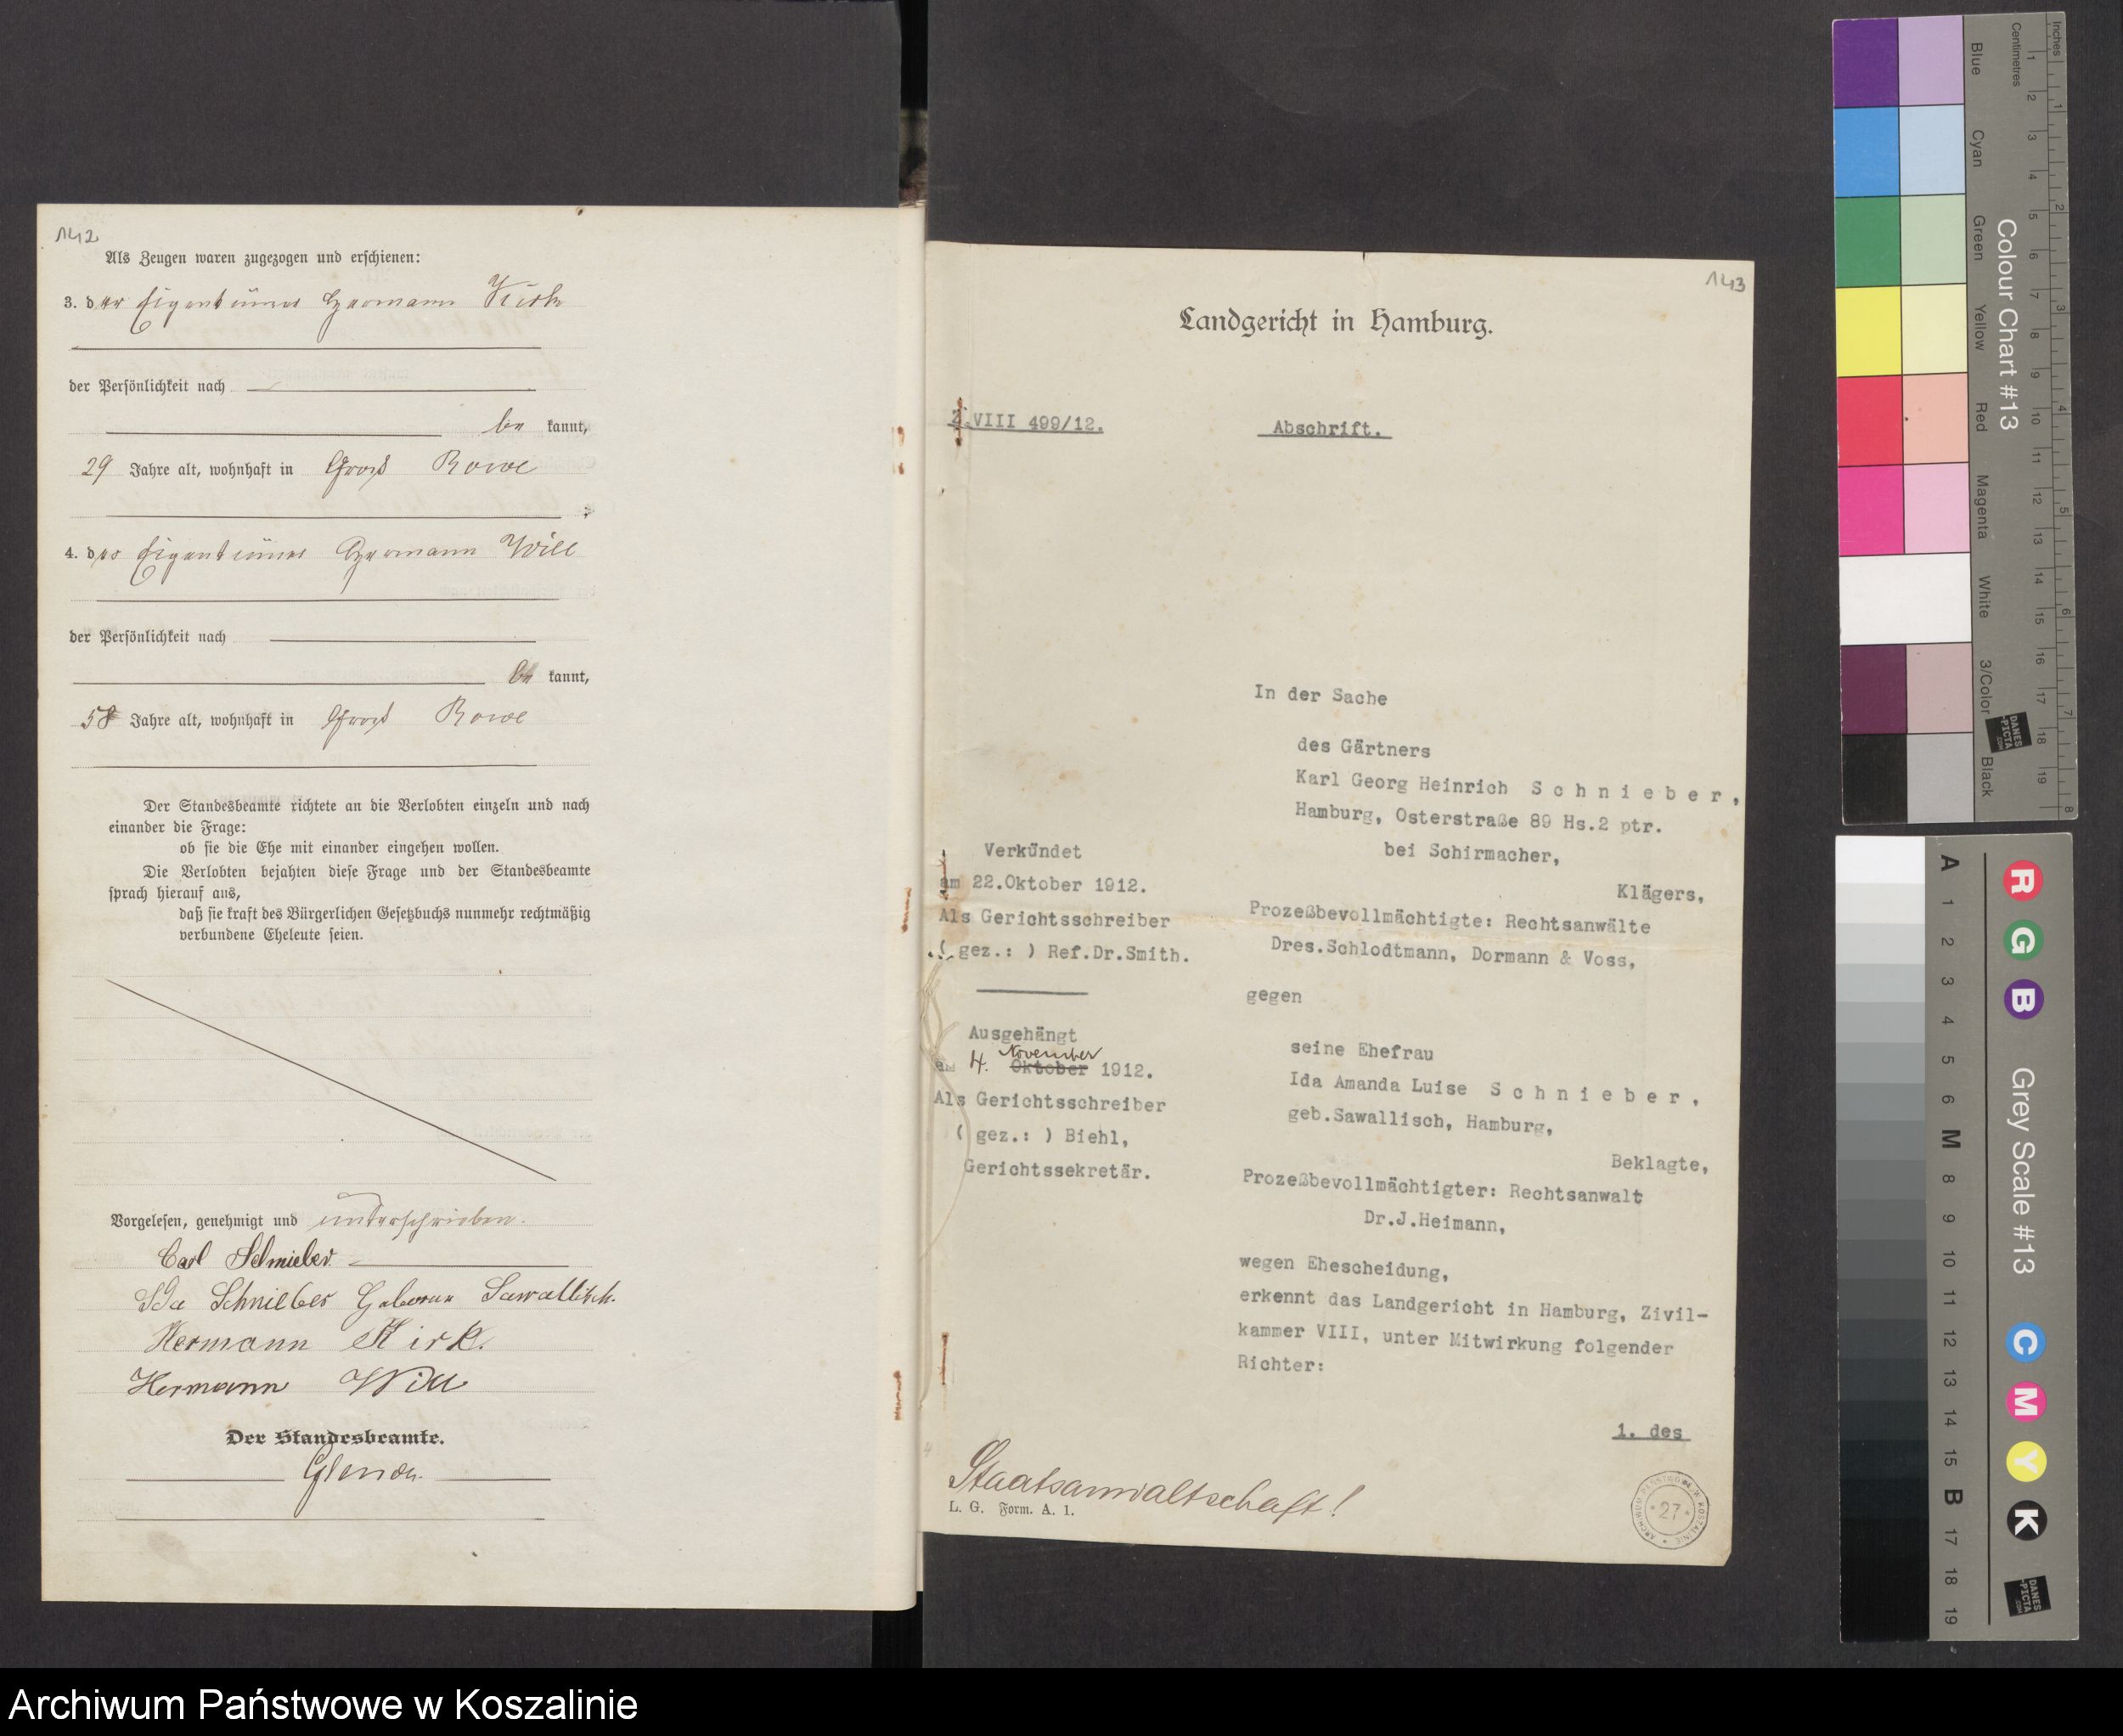 142
Als Zeugen waren zugezogen und erschienen:
3. der Eigentümer Hermann Kirk
der Persönlichkeit nach
be kannt,
29 Jahre alt, wohnhaft in Gross Rowe
;
4. der Eigentümer Hermann Will
der Persönlichkeit nach
be kannt,
58 Jahre alt, wohnhaft in Gross Rowe
Der Standesbeamte richtete an die Verlobten einzeln und nach
einander die Frage:
ob sie die Ehe mit einander eingehen wollen.
Die Verlobten bejahten diese Frage und der Standesbeamte
sprach hierauf aus,
daß sie kraft des Bürgerlichen Gesetzbuchs nunmehr rechtmäßig
verbundene Eheleute seien.
Vorgelesen, genehmigt und unterschrieben.
Carl Schnieber
Ida Schnieber Geborene Sawallisch.
Hermann Kirk.
Hermann Will
Der Standesbeamte.
143
Landgericht in Hamburg.
Z.VIII 499/12.
Abschrift.
In der Sache
des Gärtners
Karl Georg Heinrich Schnieber,
Hamburg, Osterstraße 89 Hs.2 ptr.
bei Schirmacher,
Klägers,
Prozeßbevollmächtigte: Rechtsanwälte
Dres.Schlodtmann, Dormann & Voss,
gegen
seine Ehefrau
Ida Amanda Luise Schnieber,
geb.Sawallisch, Hamburg,
Beklagte,
Prozeßbevollmächtigter: Rechtsanwalt
Dr.J.Heimann,
wegen Ehescheidung,
erkennt das Landgericht in Hamburg, Zivil-
kammer VIII, unter Mitwirkung folgender
Richter:
1. des
Verkündet
am 22.Oktober 1912.
Als Gerichtsschreiber
( gez.: ) Ref.Dr.Smith.
Ausgehängt
November
am 4. Oktober 1912.
Als Gerichtsschreiber
( gez.: ) Biehl,
Gerichtssekretär.
Staatsanwaltschaft!
L. G. Form. A. 1.
ARCHIWUM PAŃSTWOWE W KOSZALINIE
27
Inches
Centimetres
1 2 3 4 5 6 7 8 9 10 11 12 13 14 15 16 17 18 19
1 2 3 4 5 6 7 8
Colour Chart #13
Blue
Cyan
Green
Yellow
Red
Magenta
White
3/Color
Black
DANES
-PICTA
.COM
Grey Scale #13
A 1 2 3 4 5 6 M 8 9 10 11 12 13 14 15 B 17 18 19
R
G
B
C
M
Y
K
DANES
-PICTA
.COM
Archiwum Państwowe w Koszalinie